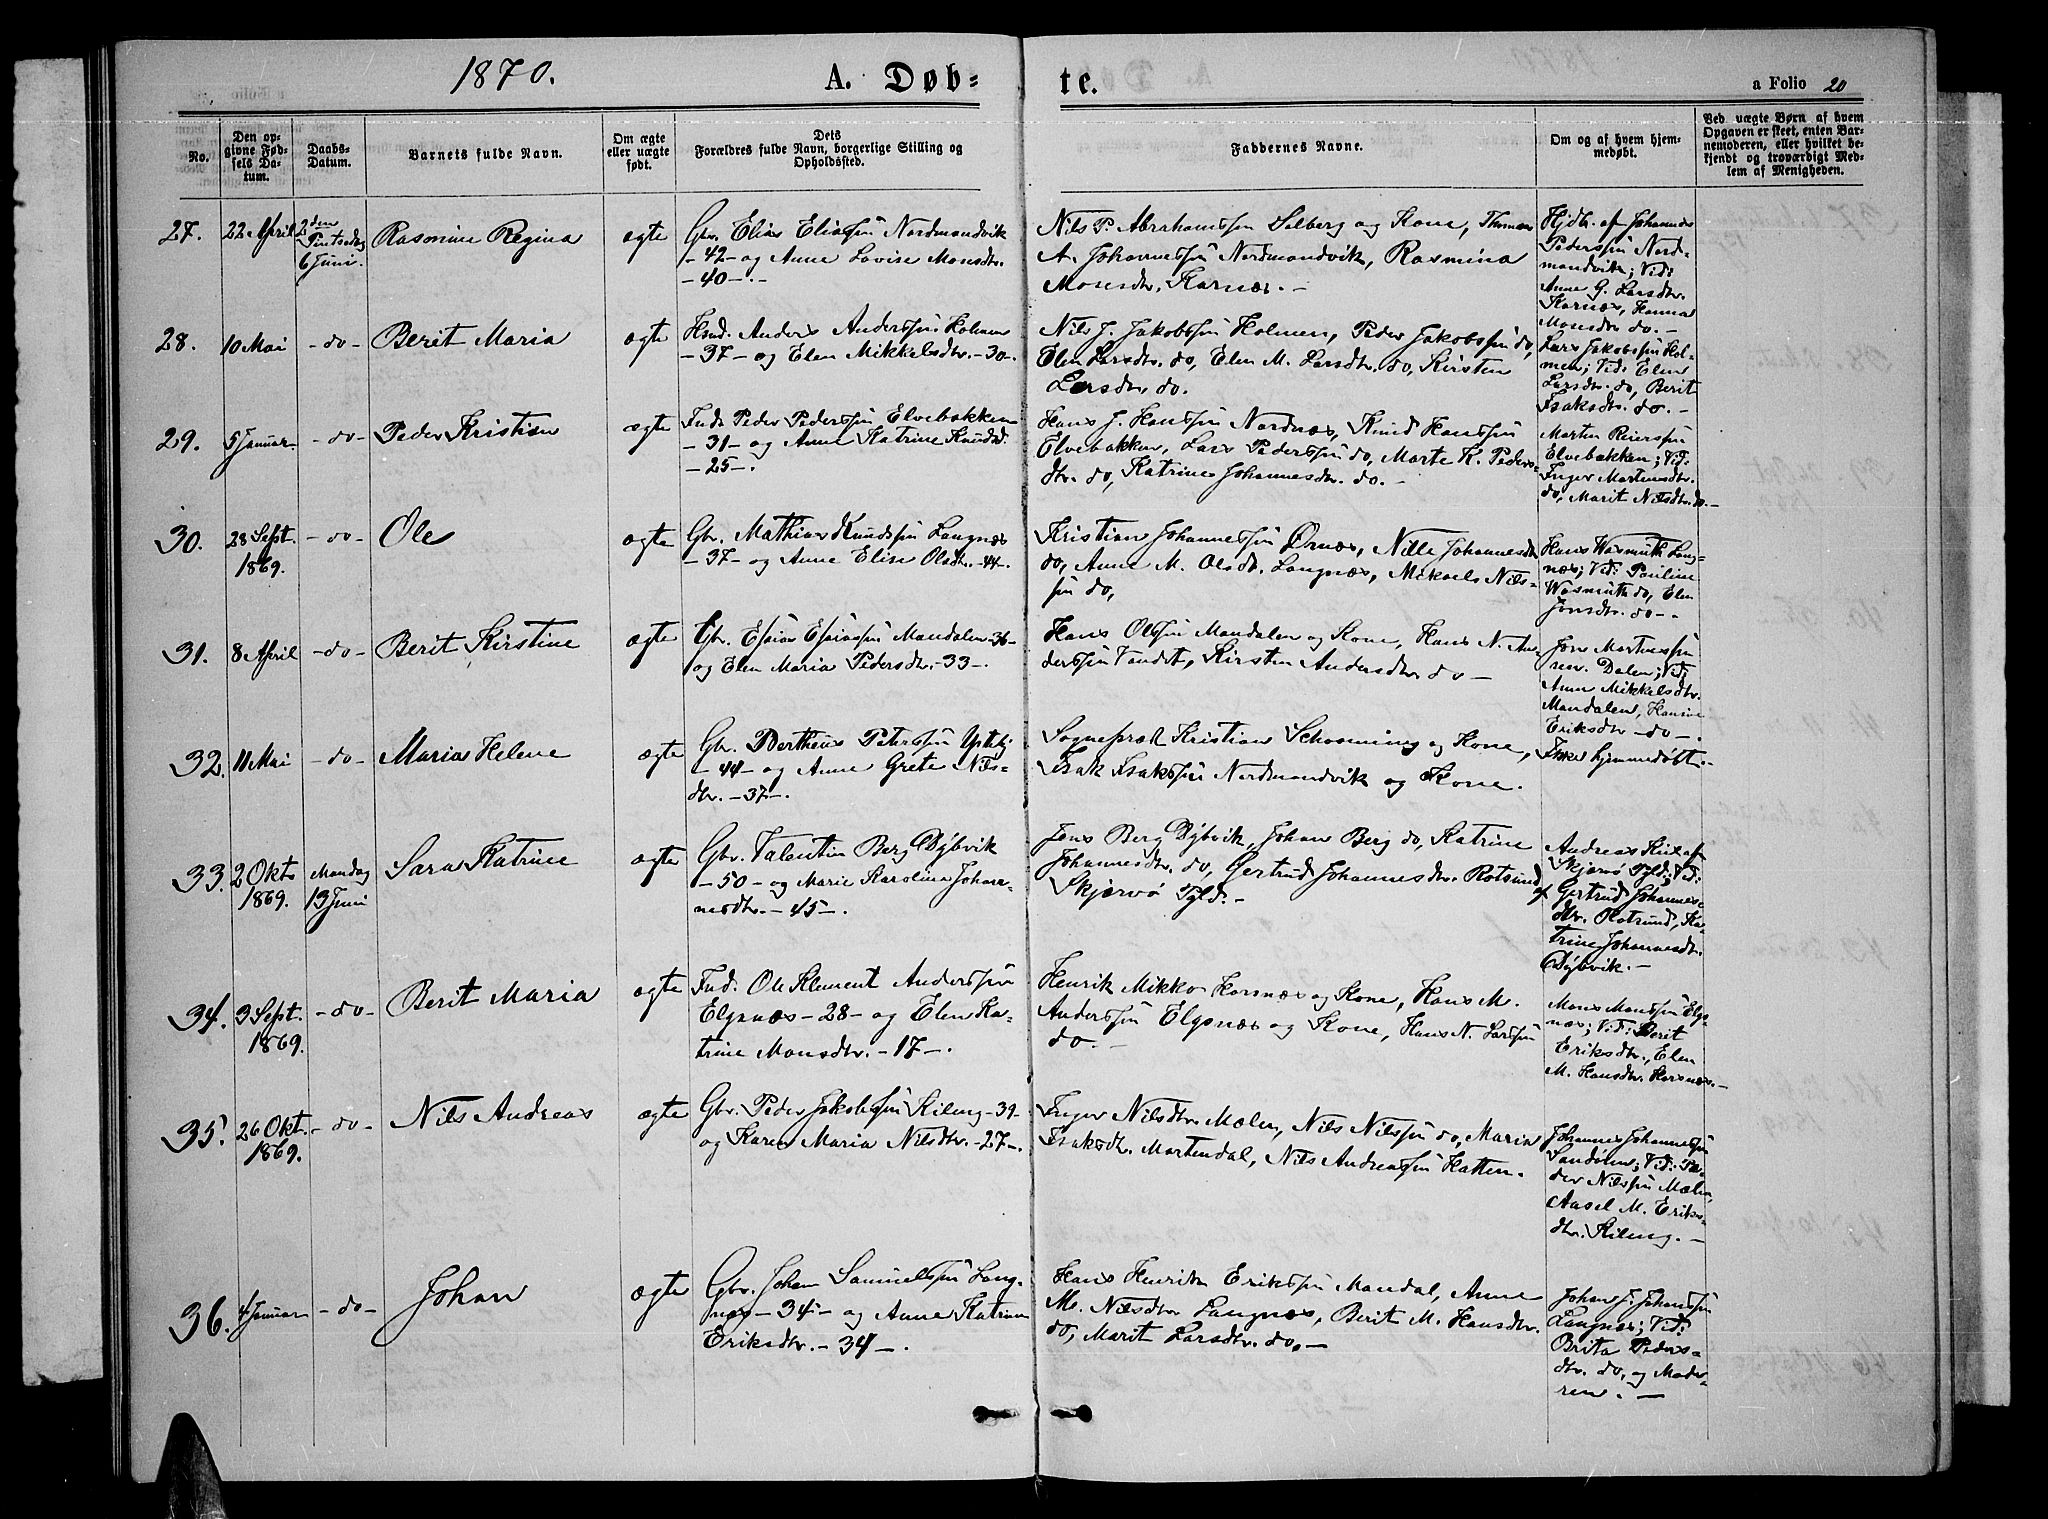 1870.
A. Døb-
te.
a Folio 20
No.
Den op-
givne Fød-
sels Da-
tum.
Daabs-
Datum.
Barnets fulde Navn.
Om ægte
eller uægte
født.
Dets
Forældres fulde Navn, borgerlige Stilling og
Opholdssted.
Faddernes Navne.
Om og af hvem hjem-
medøbt.
Ved uægte Børn af hvem
Opgaven er skeet, enten Bar-
nemoderen, eller hvilket be-
kjendt og troværdigt Med-
lem af Menigheden.
27.
22 April
2den
Pintsedag
6 Juni.
Rasmine Regina
ægte
Gbr. Elias Eliassøn Nordmandvik
- 42 - og Anne Lovise Monsdtr.
- 40 -.-
Nils P. Abrahamssøn Solberg og Kone, Thomas
A. Johannessøn Nordmandvik, Rasmina
Monsdtr. Karnæs. -
Hjdbt. af Johannes
Pederssøn Nord-
mandvik; Vid:
Anne G. Larsdtr.
Karnæs, Hanna
Monsdtr do. -
28.
10 Mai
- do -
Berit Maria
ægte
Hsmd. Anders Anderssøn Holmen
- 37 - og Elen Mikkelsdtr. - 30 -.
Nils J. Jakobssøn Holmen, Peder Jakobssøn do,
Elen Larsdtr. do, Elen M. Larsdtr. do, Kirsten
Larsdtr. do.
Lars Jakobssøn Hol-
men; Vid: Elen
Larsdtr. do, Berit
Isaksdtr. do. -
29.
5 Januar.
- do -
Peder Kristian
ægte
Ind. Peder Pederssøn Elvebakken
- 31 - og Anne Katrine Knudsd.
- 25 -.
Hans J. Hanssøn Nordnæs, Knud Hanssøn
Elvebakken, Lars Pederssøn do, Marte K. Peders-
dtr. do, Katrine Johannesdtr. do. -
Morten Reierssøn
Elvebakken; Vid:
Inger Mortensdtr.
do, Marit Nilsdtr. do. -
30.
28 Sept.
1869.
- do -
Ole
ægte
Gbr. Mathias Knudssøn Langnæs
- 37 - og Anne Elise Olsdtr. - 44 -.
Kristian Johannessøn Ørnæs, Nille Johannesdtr
do, Anne M. Olsdtr. Langnæs, Mikael Nils-
søn do,
Hans Wasmuth Lang-
næs; Vid: Pauline
Wasmuth do, Elen
Jonsdtr. do - -
31.
8 April
- do -
Berit Kirstine
ægte
Gbr. Esaias Esaiassøn Mandalen - 36 -
og Elen Maria Pedersdtr. - 33 -.
Hans Olssøn Mandalen og Kone, Hans N. An-
derssøn Vandet, Kirsten Andersdtr. do -
Jon Mortenssøn
Dalen; Vid:
Anne Mikkelsdtr.
Mandalen, Hansine
Eriksdtr - do -.
32.
11 Mai
- do -
Maria Helene
ægte
Gbr. Bertheus Peterssøn
- 44 - og Anne Grete Nils-
dtr. - 37 -.
Sognepræst Kristian Schooning og Kone,
Isak Isakssøn Nordmandvik og Kone.
Ikke hjemmedøbt. -
33.
2 Okt.
1869.
Mandag
13 Juni
Sara Katrine
ægte
Gbr. Valentin Berg Dybvik
- 50 - og Marie Karoline Johan-
nesdtr. - 45 -.
Jens Berg Dybvik, Johan Berg do, Katrine
Johannesdtr. do, Gertrud Johannesdtr. Rotsund af
Skjervø Pgld. -
Andreas
Skjervø Pgld; Vid:
Gertrud Johannes-
dtr. Rotsund, Ka-
trine Johannesdtr.
Dybvik. -
34.
3 Sept.
1869.
- do -
Berit Maria
ægte
Ind. Ole Klement Anderssøn
Elgsnæs - 28 - og Elen Ka-
trine Monsdtr. - 17 -.
Henrik Mikko Horsnæs og Kone, Hans M.
Anderssøn Elgsnæs og Kone, Hans N. Larssøn
do. -
Mons Monssøn Elgs-
næs; Vid: Berit
Eriksdtr., Elen
M. Hansdtr. Horsnæs. -
35.
26 Okt.
1869.
- do -
Nils Andreas
ægte
Gbr. Peder Jakobssøn Kileng - 39 -
og Karen Maria Nilsdtr. - 27 -.
Inger Nilsdtr. Mælen, Nils Nilssøn do, Maria
Isaksdtr. Mortendal, Nils Andreassøn Hatten. -
Johannes Johannessøn
Sandøren; Vid: Pe-
der Nilssøn Mælen,
Aasel M. Eriks-
dtr. Kileng. -
36.
4 Januar
- do -
Johan
ægte
Gbr. Johan Samuelssøn Lang-
næs - 34 - og Anne Katrine
Eriksdtr. - 34 -.
Hans Henrik Erikssøn Mandal, Anne
M. Nilsdtr. Langnæs, Berit M. Hansdtr.
do, Marit Larsdtr. do. -
Johan J. Johanssøn
Langnæs; Vid:
Brita Peders-
dtr. do, og Mode-
ren. -